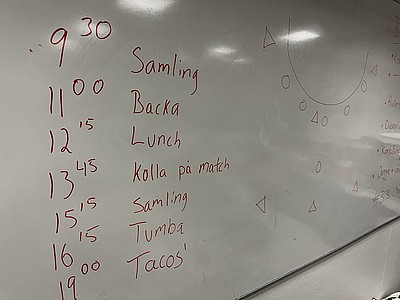 9 30 Samling
11 00 Backa
12 15 Lunch
13 45 Kolla på match
15 15 Samling
16 15 Tumba
19 00 Tacos